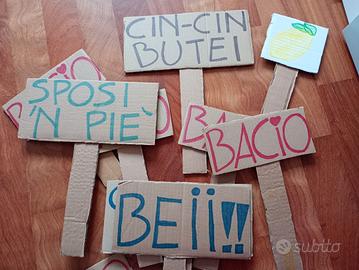 CIN-CIN
BUTEI
SPOSI
'N PIÈ
BACIO
BACIO
BEII!!
subito